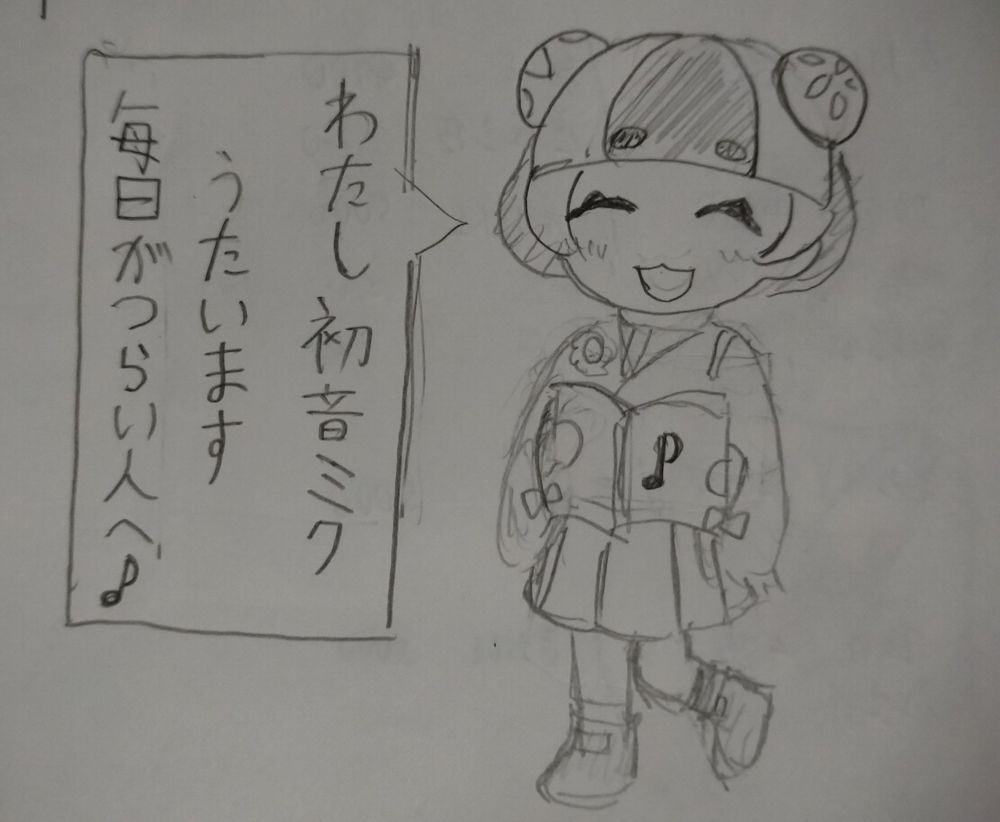 わたし 初音ミク
うたいます
毎日がつらい人へ♪